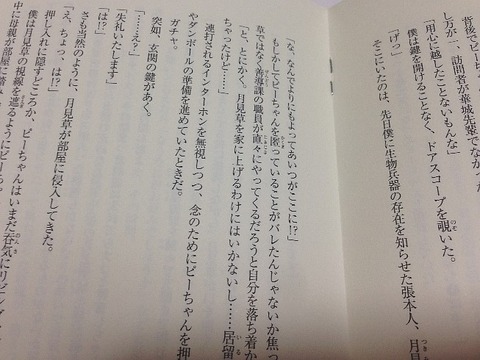 背後でピーち
し方が一、訪問者が華城先輩でなか
「用心に越したことないもんな」
僕は鍵を開けることなく、ドアスコープを覗いた。
「げっ」
そこにいたのは、先日僕に生物兵器の存在を知らせた張本人、月見
「な、なんでよりにもよってあいつがここに!?」
もしかしてピーちゃんを匿っていることがバレたんじゃないか焦っ
草ではなく善導課の職員が直々にやってくるだろうと自分を落ち着か
「と、とにかく。月見草を家に上げるわけにはいかないし……居留
ちゃったけど……」
連打されるインターホンを無視しつつ、念のためにピーちゃんを押
やダンボールの準備を進めていたときだ。
ガチャ。
突如、玄関の鍵があく。
「……え?」
「失礼いたします」
「は!?」
さも当然のように、月見草が部屋に侵入してきた。
「え、ちょっ、は!?」
押し入れに隠すどころか、ピーちゃんはいまだ呑気にリビング
僕は月見草の視線を遮るようにピーちゃ
中に母親が部屋に